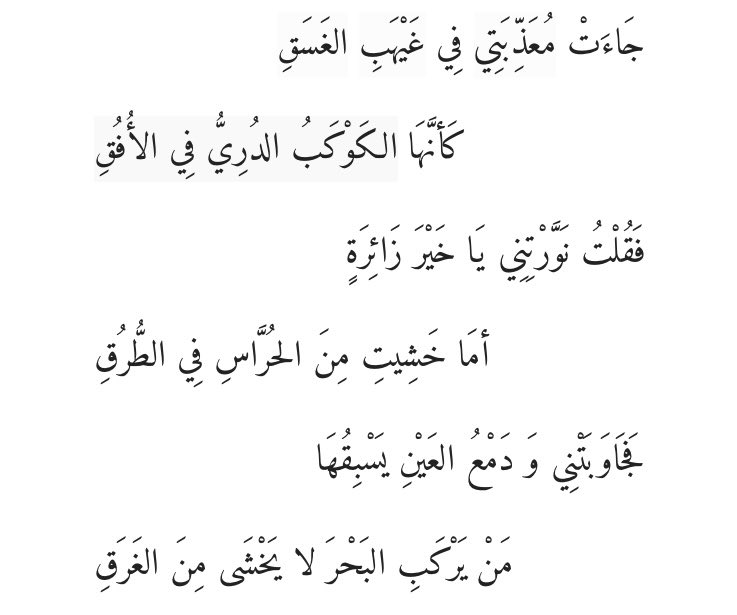 جَاءَتْ مُعَذِّبَتِي فِي غَيْهَبِ الغَسَقِ
كَأنَّهَا الكَوْكَبُ الدُرِيُّ فِي الأُفُقِ
فَقُلْتُ نَوَّرْتِنِي يَا خَيْرَ زَائِرَةٍ
أمَا خَشِيتِ مِنَ الحُرَّاسِ فِي الطُّرُقِ
فَجَاوَبَتْنِي وَ دَمْعُ العَيْنِ يَسْبِقُهَا
مَنْ يَرْكَبِ البَحْرَ لا يَخْشَى مِنَ الغَرَقِ